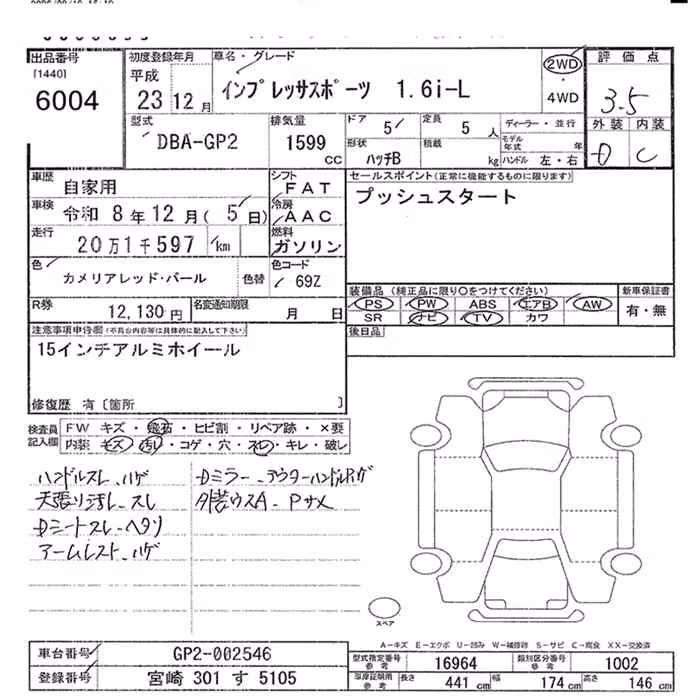 出品番号
[1440]
6004
初度登録年月
平成
23 12 月
車名・グレード
インプレッサスポーツ 1.6i-L
2WD
・
4WD
評価点
3.5
外装 内装
D C
型式
DBA-GP2
排気量
1599
CC
ドア
5
定員
5 人
ディーラー・並行
形状
ハッチB
積載
kg
モデル年式 年
ハンドル 左・右
車歴
自家用
シフト
FAT
車検
令和 8 年 12 月 ( 5 日)
冷房
AAC
走行
20 万 1 千 597 km
燃料
ガソリン
セールスポイント(正常に機能するものに限ります)
プッシュスタート
色
カメリアレッド・パール
色替
色コード
69Z
R券
12,130 円
名変通知期限
月 日
装備品(純正品に限り○をつけてください)
PS PW ABS エアB AW
SR ナビ TV カワ
新車保証書
有・無
後日品
注意事項申告欄(不具合内容等は具体的に記入して下さい)
15インチアルミホイール
修復歴 有〔箇所 〕
検査員記入欄
FW キズ・飛石・ヒビ割・リペア跡・×要
内装 キズ・汚れ・コゲ・穴・スレ・キレ・破レ
ハンドルスレ、ハゲ
天張り汚レ、スレ
Dシートスレ・ヘタリ
アームレスト、ハゲ
Dミラー、アウターハンドルハゲ
外装ウスA、Pサメ
スペア
A-キズ E-エクボ U-凹み W-補修跡 S-サビ C-腐食 XX-交換済
車台番号
GP2-002546
登録番号
宮崎 301 す 5105
型式指定番号
参考
16964
類別区分番号
参考
1002
車庫証明用
参考
長さ
441 cm
幅
174 cm
高さ
146 cm